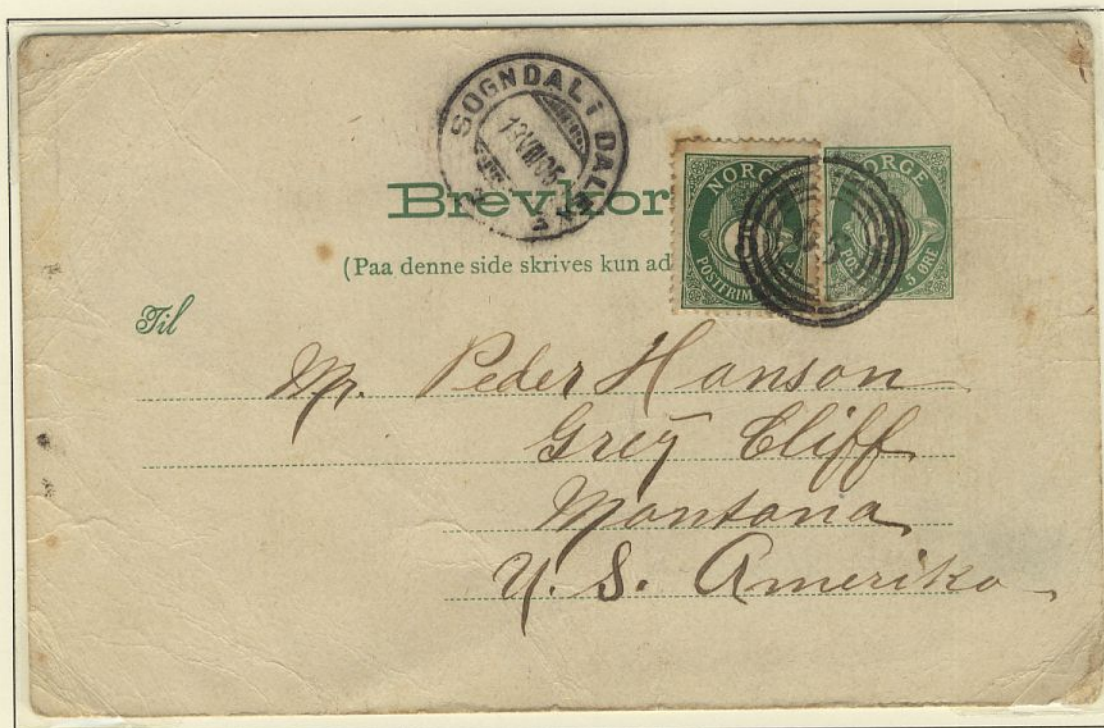 SOGNDAL I DALENE
13 VIII 05
Brevkor
(Paa denne side skrives kun ad
NORGE
POSTFRIM
NORGE
POST
5 ØRE
Til
Mr. Peder Hanson
Grey Cliff
Montana
U. S. Amerika